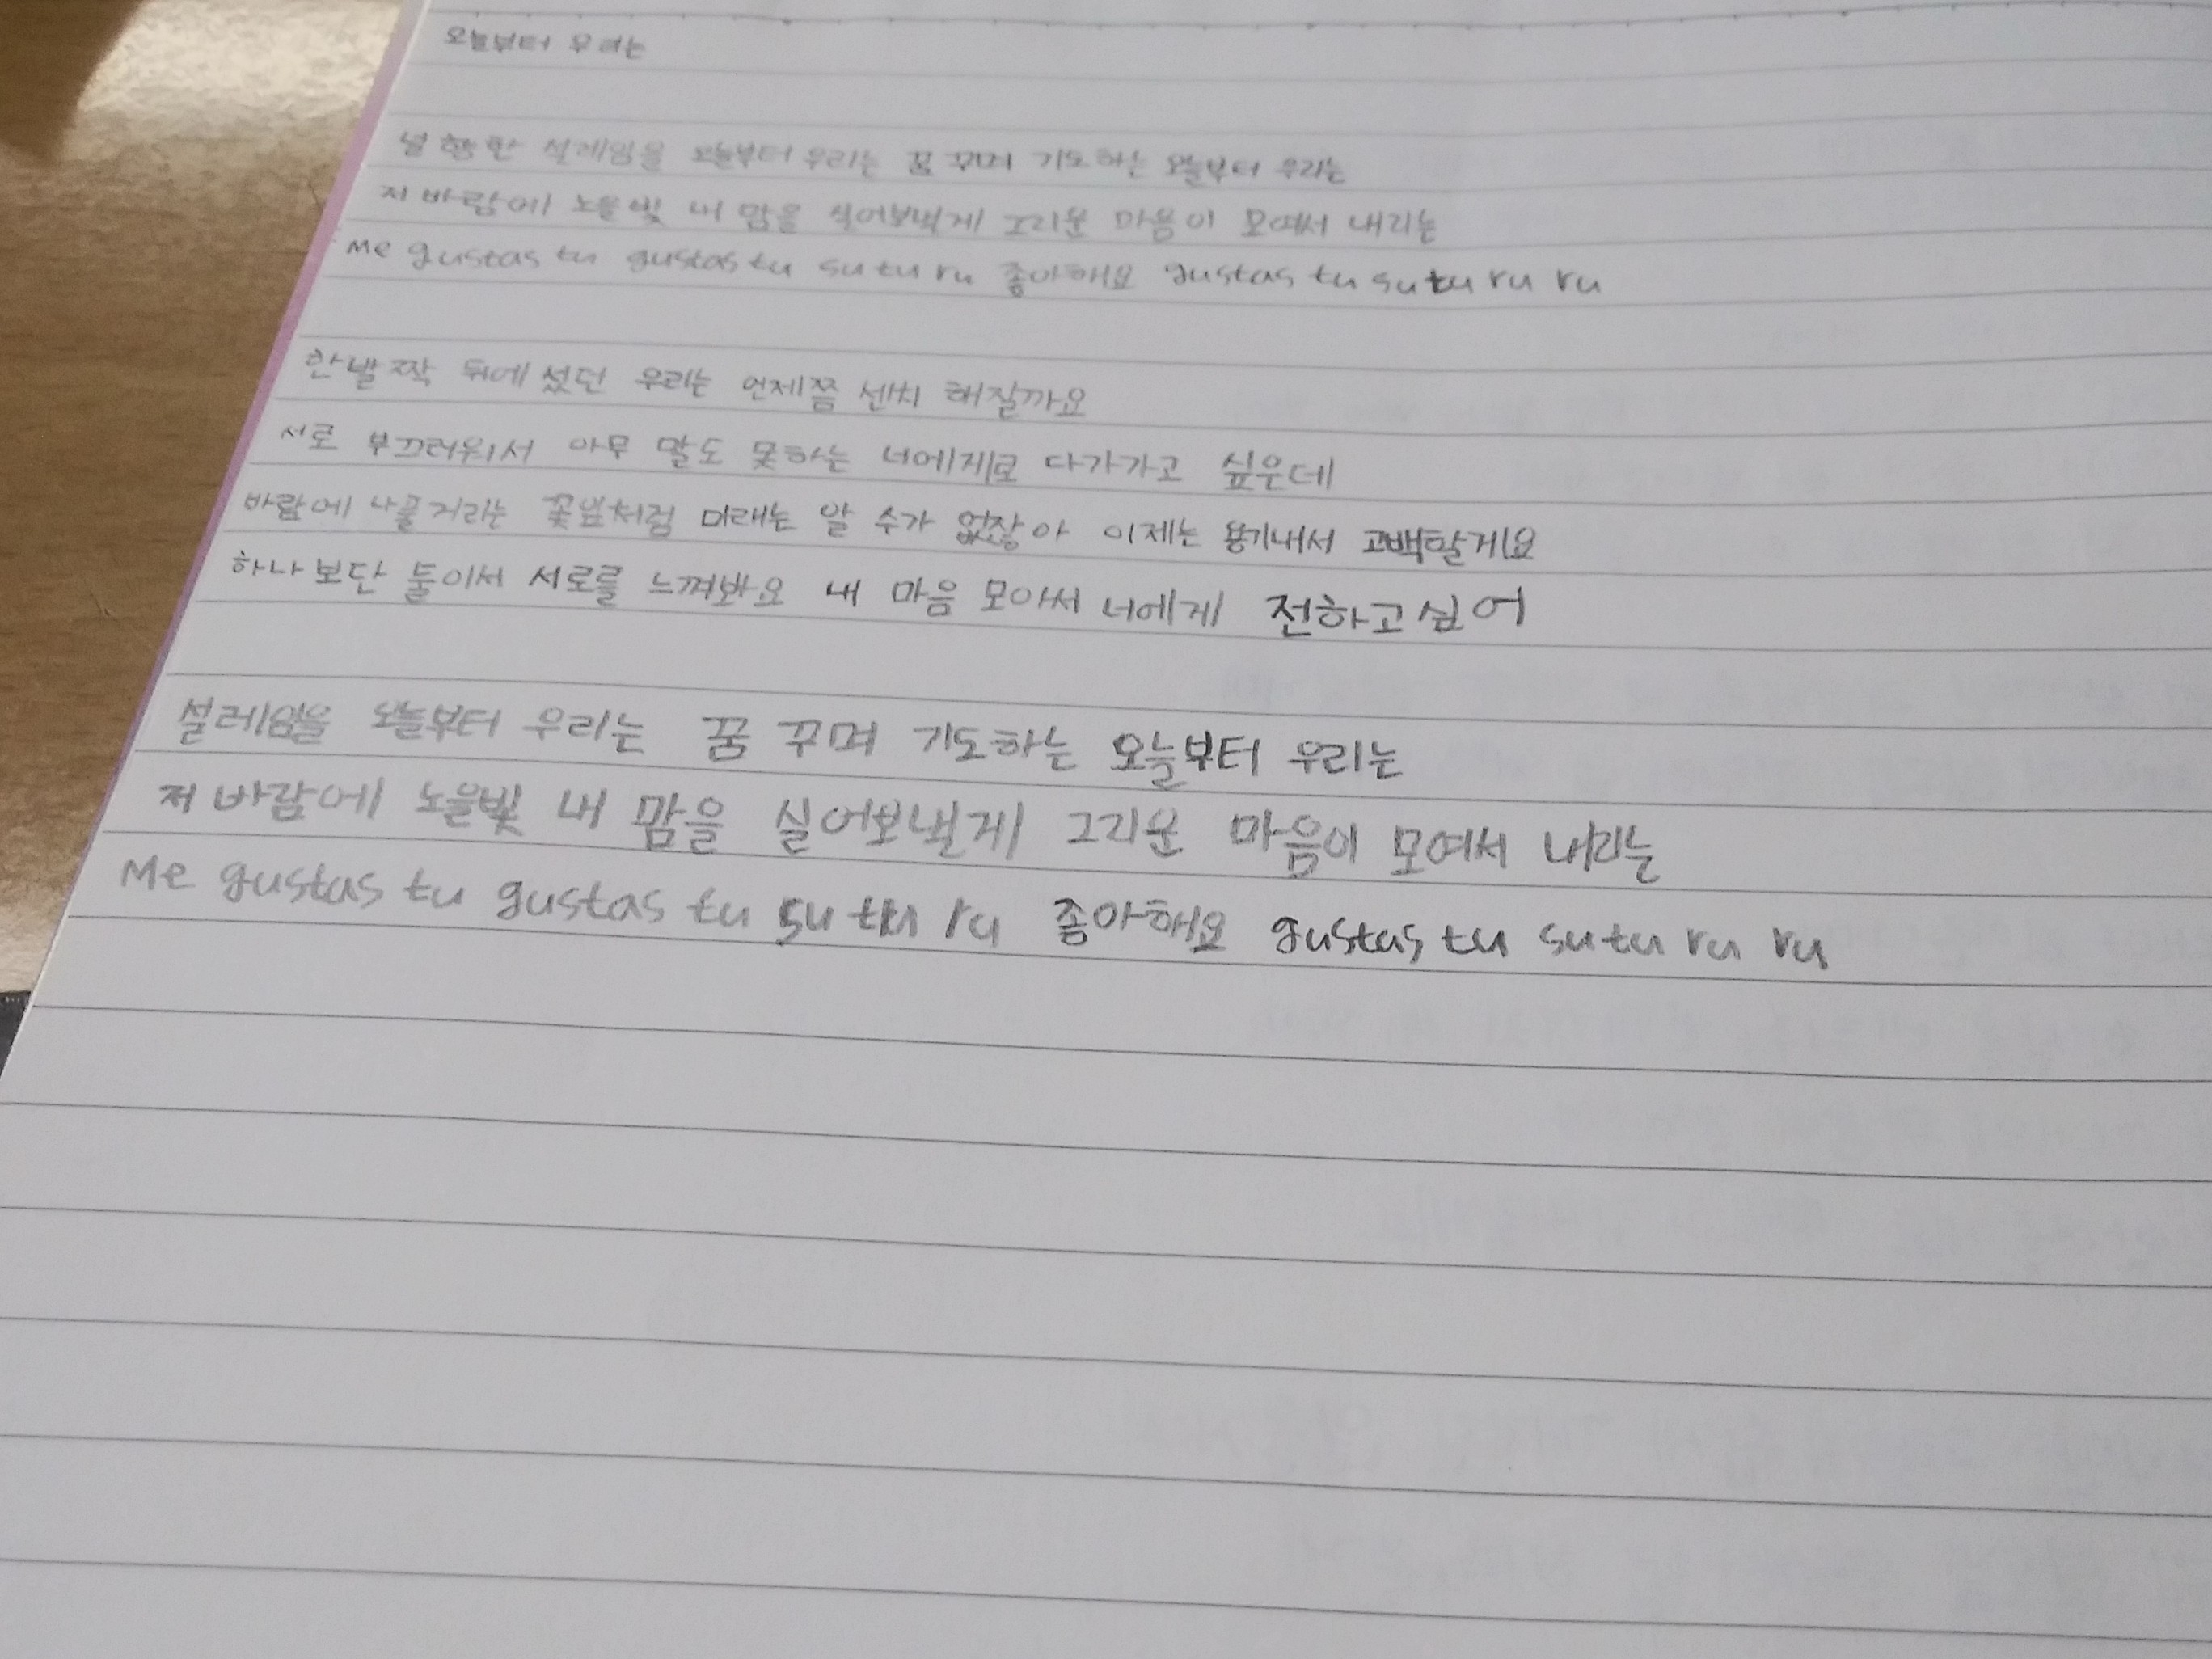 오늘부터 우리는
널 향한 설레임을 오늘부터 우리는 꿈 꾸며 기도하는 오늘부터 우리는
저 바람에 노을빛 내 맘을 실어보낼게 그리운 마음이 모여서 내리는
Me gustas tu gustas tu su tu ru 좋아해요 gustas tu su tu ru ru
한발짝 뒤에 섰던 우리는 언제쯤 센치 해질까요
서로 부끄러워서 아무 말도 못하는 너에게로 다가가고 싶은데
바람에 나풀거리는 꽃잎처럼 미래는 알 수가 없잖아 이제는 용기내서 고백할게요
하나보단 둘이서 서로를 느껴봐요 내 마음 모아서 너에게 전하고싶어
설레임을 오늘부터 우리는 꿈 꾸며 기도하는 오늘부터 우리는
저 바람에 노을빛 내 맘을 실어보낼게 그리운 마음이 모여서 내리는
Me gustas tu gustas tu su tu ru 좋아해요 gustas tu su tu ru ru